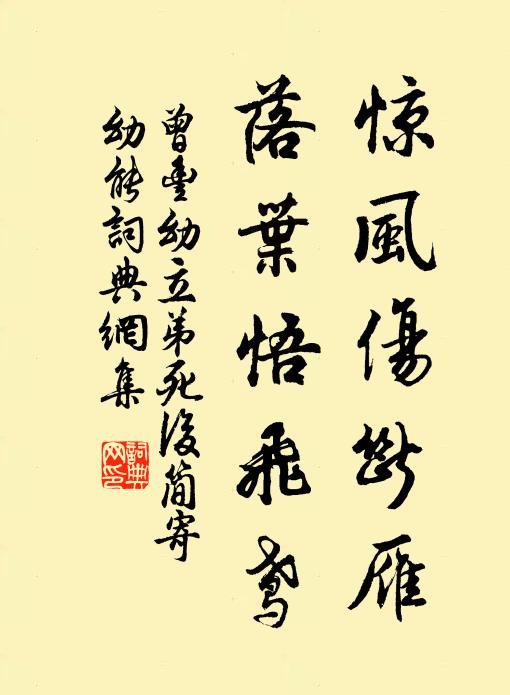 惊風傷斷雁
落葉悟飛鳶
曾豐幼立弟死後簡寄
幼能詞典網集
詞典网印